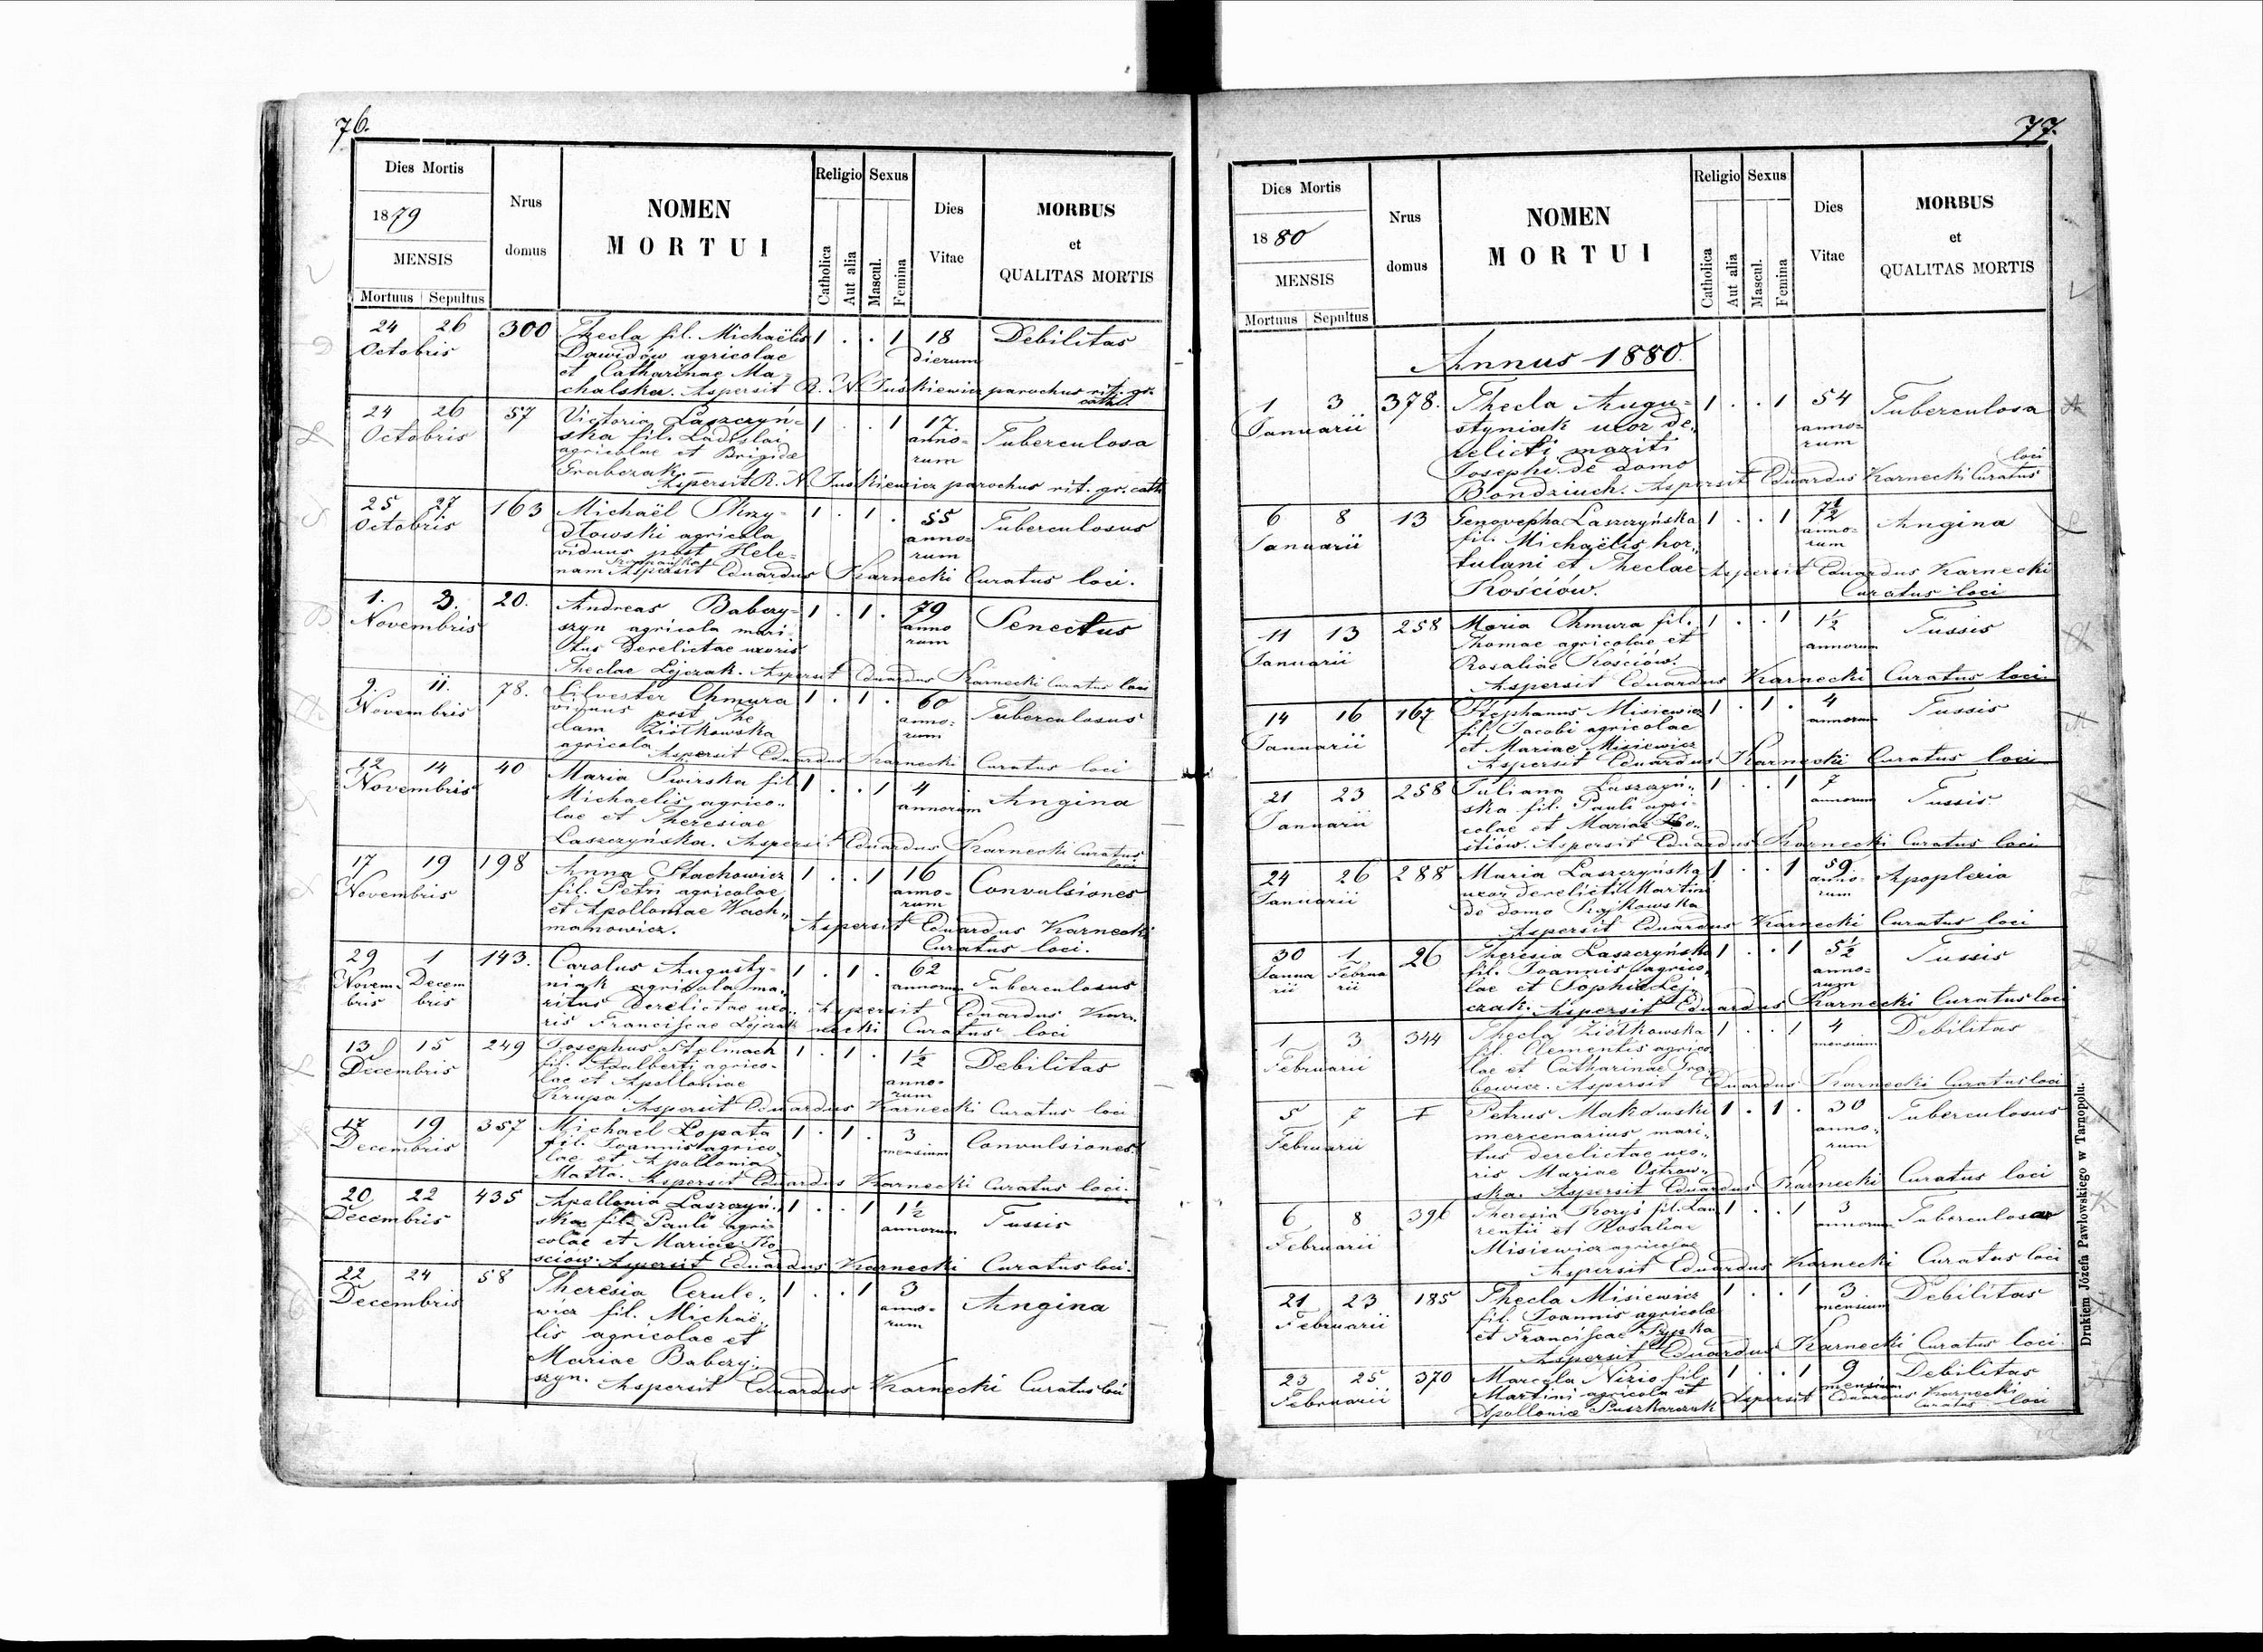 76.
Dies Mortis
1879
MENSIS
Mortuus Sepultus
Nrus
domus
NOMEN
MORTUI
Religio
Catholica
Aut alia
Sexus
Mascul.
Femina
Dies
Vitae
MORBUS
et
QUALITAS MORTIS
24 26 300 Thecla fil. Michaëlis 1 . . 1 18 Debilitas
Octobris Dawidów agricolae dierum
et Catharinae Ma-
chalska. Aspersit R. N. Juskiewicz parochus rit. gr.
cath.
24 26 57 Victoria Laszczyń- 1 . . 1 17. Tuberculosa
Octobris ska fil. Ladislai anno-
agricolae et Brigidae rum
Grabczak. Aspersit R. N. Juskiewicz parochus rit. gr. cath
25 27 163 Michaël Skrzy- 1 . 1 . 55 Tuberculosus
Octobris dłowski agricola anno-
viduus post Hele- rum
nam Aspersit Eduardus Karnecki Curatus loci.
1. 3. 20. Andreas Babczy- 1 . 1 . 79 Senectus
Novembris szyn agricola mari- anno
tus derelictae uxoris rum
Theclae Lejczak. Aspersit Eduardus Karnecki Curatus loci
9. 11. 78. Silvester Chmura 1 . 1 . 60 Tuberculosus
Novembris viduus post The anno-
clam Ziółkowska rum
agricola Aspersit Eduardus Karnecki Curatus loci
12 14 40 Maria Swirska fil 1 . . 1 4 Angina
Novembris Michaelis agrico- annorum
lae et Theresiae
Laszczyńska. Aspersit Eduardus Karnecki Curatus
loci
17 19 198 Anna Stachowicz 1 . . 1 16 Convulsiones
Novembris fil. Petri agricolae anno-
et Apolloniae Wach- rum
manowicz. Aspersit Eduardus Karnecki
Curatus loci.
29 1 143. Carolus Augusty- 1 . 1 . 62 Tuberculosus
Novem- Decem niak agricola ma- annorum
bris bris ritus derelictae uxo- Aspersit Eduardus Kar-
ris Franciscae Lejczak necki Curatus loci
13 15 249 Josephus Stelmach 1 . 1 . 1½ Debilitas
Decembris fil. Adalberti agrico- anno-
lae et Apolloniae rum
Krupa. Aspersit Eduardus Karnecki Curatus loci
17 19 357 Michael Lopata 1 . 1 . 3 Convulsiones.
Decembris fil. Joannis agrico- mensium
lae et Apollonia
Matta. Aspersit Eduardus Karnecki Curatus loci.
20 22 435 Apollonia Laszczyń- 1 . . 1 1½ Tussis
Decembris ska fil. Pauli agri- annorum
colae et Mariae Ko
sciów. Aspersit Eduardus Karnecki Curatus loci.
22 24 58 Theresia Cerule- 1 . . 1 3 Angina
Decembris wicz fil. Michaë- anno-
lis agricolae et rum
Mariae Babczy-
szyn. Aspersit Eduardus Karnecki Curatus loci
77.
Dies Mortis
1880
MENSIS
Mortuus Sepultus
Nrus
domus
NOMEN
MORTUI
Religio
Catholica
Aut alia
Sexus
Mascul.
Femina
Dies
Vitae
MORBUS
et
QUALITAS MORTIS
Annus 1880.
1 3 378. Thecla Augu- 1 . . 1 54 Tuberculosa
Januarii styniak uxor de- anno-
relicti mariti rum
Josephi de domo loci
Bondziuch. Aspersit Eduardus Karnecki Curatus
6 8 13 Genovepha Laszczyńska 1 . . 1 7½ Angina
Januarii fil. Michaëlis hor- anno-
tulani et Theclae rum Aspersit Eduardus Karnecki
Kościów. Curatus loci
11 13 258 Maria Chmura fil. 1 . . 1 1½ Tussis
Januarii Thomae agricolae et annorum
Rosaliae Kościów.
Aspersit Eduardus Karnecki Curatus loci.
14 16 167 Stephanus Misiewicz 1 . 1 . 4 Tussis
Januarii fil. Jacobi agricolae annorum
et Mariae Misiewicz
Aspersit Eduardus Karnecki Curatus loci
21 23 258 Juliana Laszczyń- 1 . . 1 7 Tussis
Januarii ska fil. Pauli agri- annorum
colae et Mariae Ko-
ściów. Aspersit Eduardus Karnecki Curatus loci
24 26 288 Maria Laszczyńska 1 . . 1 59 Apoplexia
Januarii uxor derelicti Martini anno-
de domo rum
Aspersit Eduardus Karnecki Curatus loci
30 1 26 Theresia Laszczyńska 1 . . 1 5½ Tussis
Janua Februa fil. Joannis agrico- anno-
rii rii lae et Sophia Lej- rum
czak. Aspersit Eduardus Karnecki Curatus loci
1 3 344 Thecla Ziółkowska 1 . . 1 4 Debilitas
Februarii fil. Clementis agrico- mensium
lae et Catharinae Gra-
bowicz. Aspersit Eduardus Karnecki Curatus loci
5 7 Petrus Makowski 1 . 1 . 30 Tuberculosus
Februarii mercenarius mari- anno-
tus derelictae uxo- rum
ris Mariae Ostrow-
ska. Aspersit Eduardus Karnecki Curatus loci
6 8 396 Theresia Koryś fil. Lau 1 . . 1 3 Tuberculosa
Februarii rentii et Rosaliae annorum
Misiewicz agricolae
Aspersit Eduardus Karnecki Curatus loci
21 23 185 Thecla Misiewicz 1 . . 1 3 Debilitas
Februarii fil. Joannis agricolae mensium
et Franciscae
Aspersit Eduardus Karnecki Curatus loci.
23 25 370 Marcela Nizio fil. 1 . . 1 9 Debilitas
Februarii Martini agricola et mensium
Apolloniae Puszkarczuk Aspersit Eduardus Karnecki
Curatus loci
Drukiem Józefa Pawłowskiego w Tarnopolu.